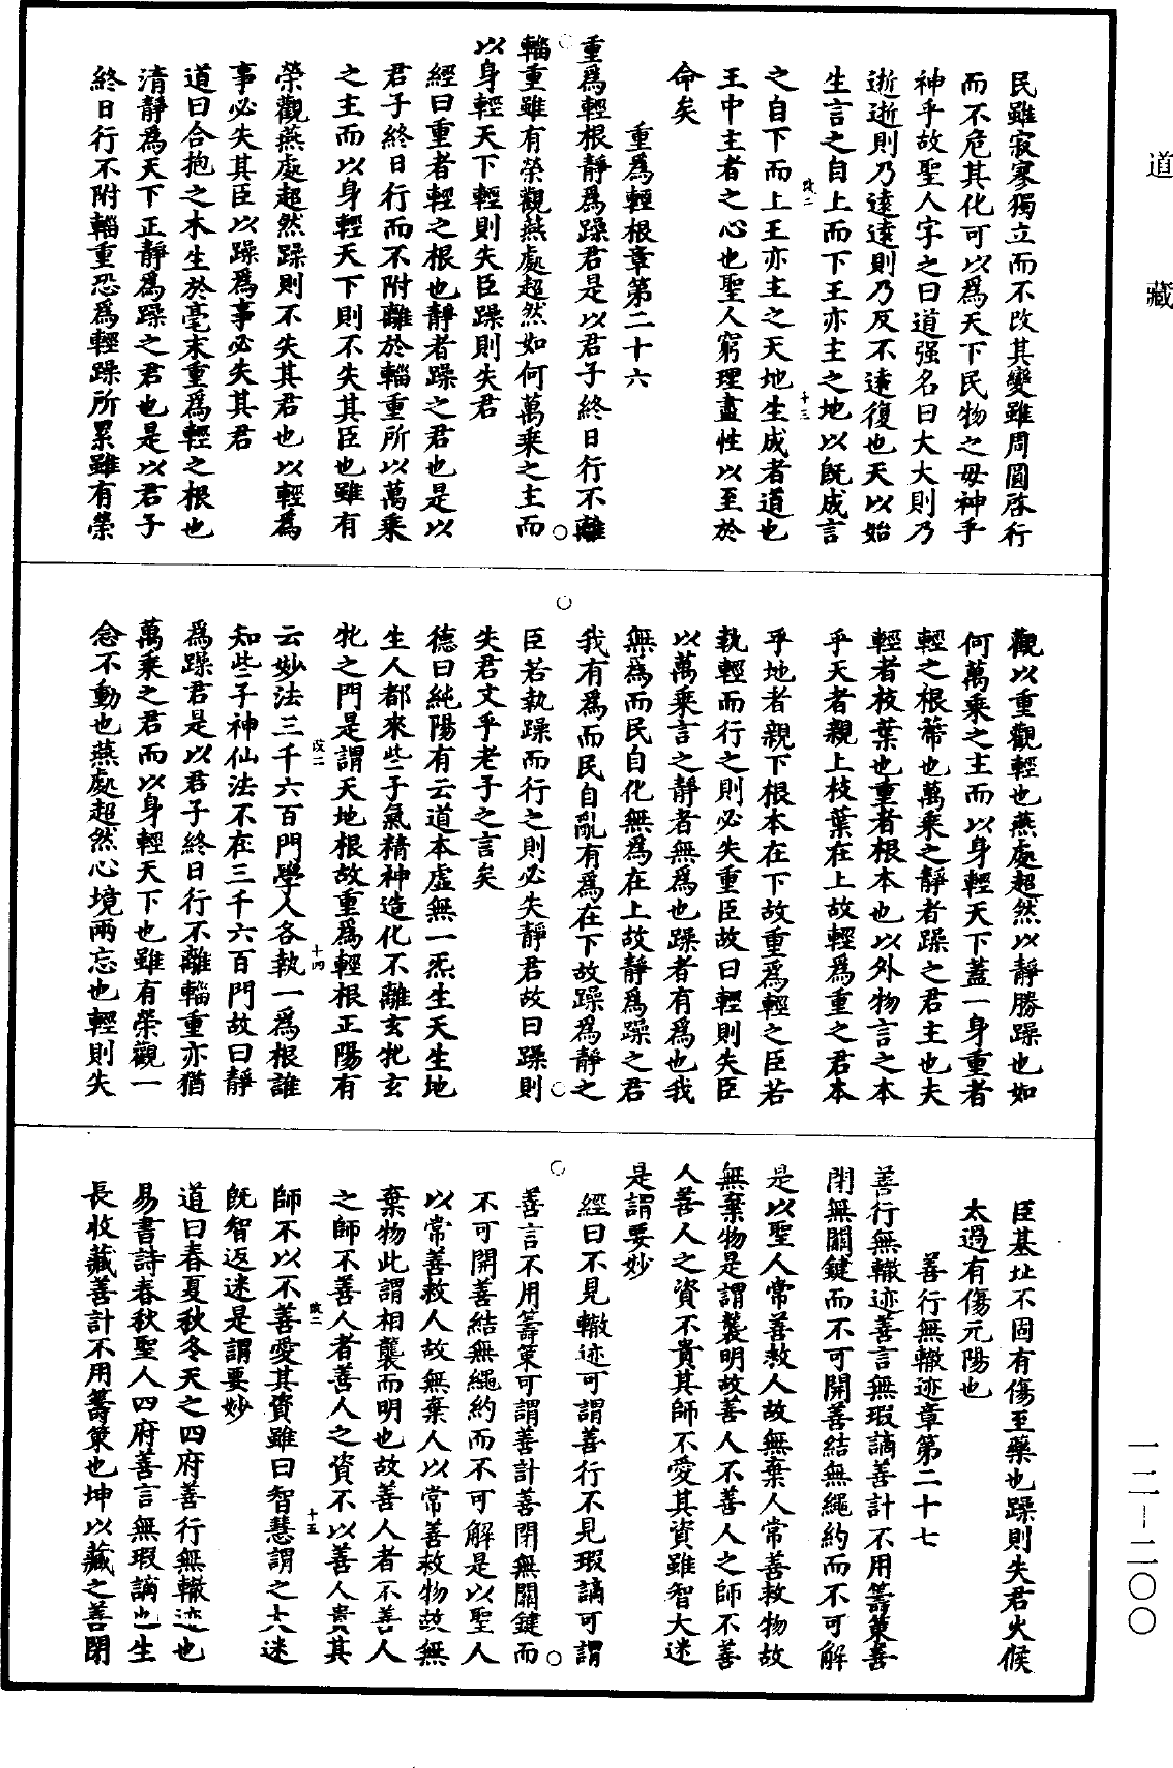 道藏
民雖寂寥獨立而不改其變雖周圓啓行
而不危其化可以爲天下民物之母神乎
神乎故聖人字之曰道强名曰大大則乃
逝逝則乃遠遠則乃反不遠復也天以始
生言之自上而下王亦主之地以旣成言
改二
十三
之自下而上王亦主之天地生成者道也
王中主者之心也聖人窮理盡性以至於
命矣
重爲輕根章第二十六
重爲輕根靜爲躁君是以君子終日行不離
輜重雖有榮觀燕處超然如何萬乘之主而
以身輕天下輕則失臣躁則失君
經曰重者輕之根也靜者躁之君也是以
君子終日行而不附離於輜重所以萬乘
之主而以身輕天下則不失其臣也雖有
榮觀燕處超然躁則不失其君也以輕爲
事必失其臣以躁爲事必失其君
道曰合抱之木生於毫末重爲輕之根也
清靜爲天下正靜爲躁之君也是以君子
終日行不附輜重恐爲輕躁所累雖有榮
觀以重觀輕也燕處超然以靜勝躁也如
何萬乘之主而以身輕天下蓋一身重者
輕之根蔕也萬乘之靜者躁之君主也夫
輕者枝葉也重者根本也以外物言之本
乎天者親上枝葉在上故輕爲重之君本
乎地者親下根本在下故重爲輕之臣若
執輕而行之則必失重臣故曰輕則失臣
以萬乘言之靜者無爲也躁者有爲也我
無爲而民自化無爲在上故靜爲躁之君
我有爲而民自亂有爲在下故躁爲靜之
臣若執躁而行之則必失靜君故曰躁則
失君文乎老子之言矣
德曰純陽有云道本虛無一炁生天生地
生人都來些子氣精神造化不離玄牝玄
牝之門是謂天地根故重爲輕根正陽有
改二
十四
云妙法三千六百門學人各執一爲根誰
知些子神仙法不在三千六百門故曰靜
爲躁君是以君子終日行不離輜重亦猶
萬乘之君而以身輕天下也雖有榮觀一
念不動也燕處超然心境兩忘也輕則失
臣基址不固有傷至藥也躁則失君火候
太過有傷元陽也
善行無轍迹章第二十七
善行無轍迹善言無瑕謫善計不用籌策善
閉無關鍵而不可開善結無繩約而不可解
是以聖人常善救人故無棄人常善救物故
無棄物是謂襲明故善人不善人之師不善
人善人之資不貴其師不愛其資雖智大迷
是謂要妙
經曰不見轍迹可謂善行不見瑕謫可謂
善言不用籌策可謂善計善閉無關鍵而
不可開善結無繩約而不可解是以聖人
以常善救人故無棄人以常善救物故無
棄物此謂相襲而明也故善人者不善人
之師不善人者善人之資不以善人貴其
改二
十五
師不以不善愛其資雖曰智慧謂之大迷
旣智返迷是謂要妙
道曰春夏秋冬天之四府善行無轍迹也
易書詩春秋聖人四府善言無瑕謫也生
長收藏善計不用籌策也坤以藏之善閉
一二-二〇〇